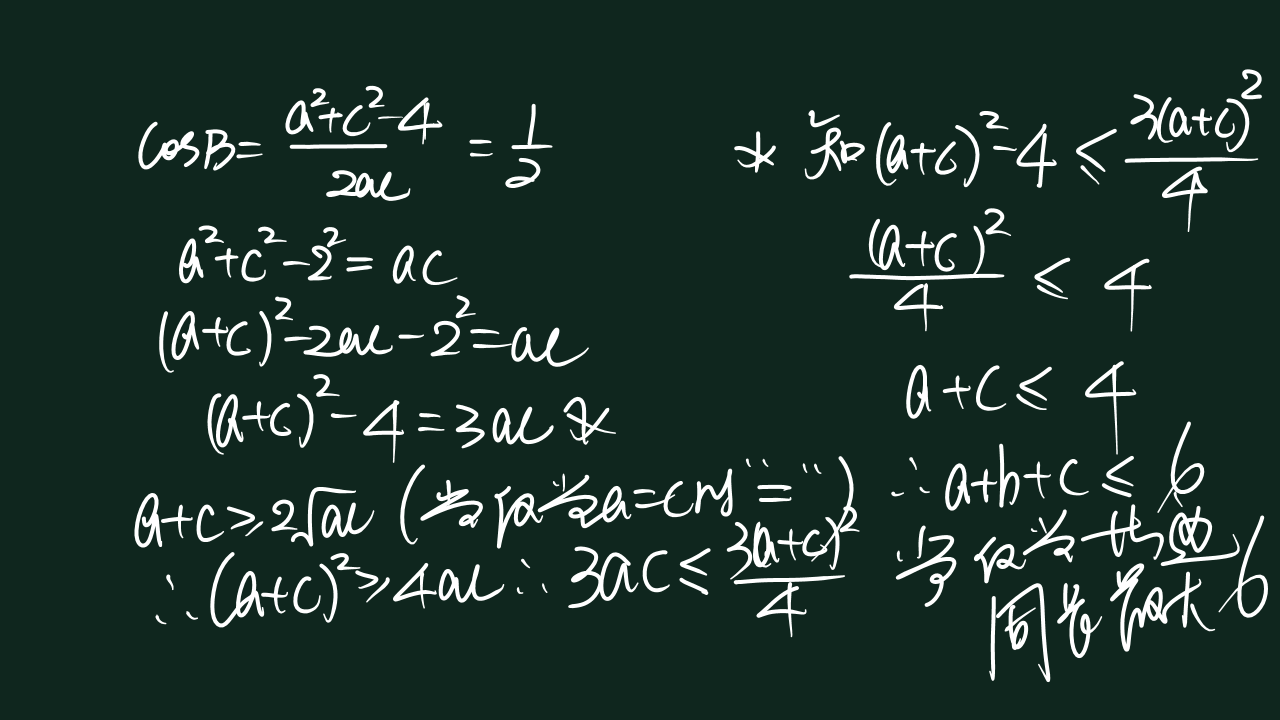 cosB = (a²+c²-4)/(2ac) = 1/2
a²+c²-2² = ac
(a+c)²-2ac-2² = ac
(a+c)²-4 = 3ac *
a+c ≥ 2√ac (当仅当a=c时"=")
∴(a+c)² ≥ 4ac ∴ 3ac ≤ 3(a+c)²/4
* 知(a+c)²-4 ≤ 3(a+c)²/4
(a+c)²/4 ≤ 4
a+c ≤ 4
∴a+b+c ≤ 6
当仅当
周长最大6